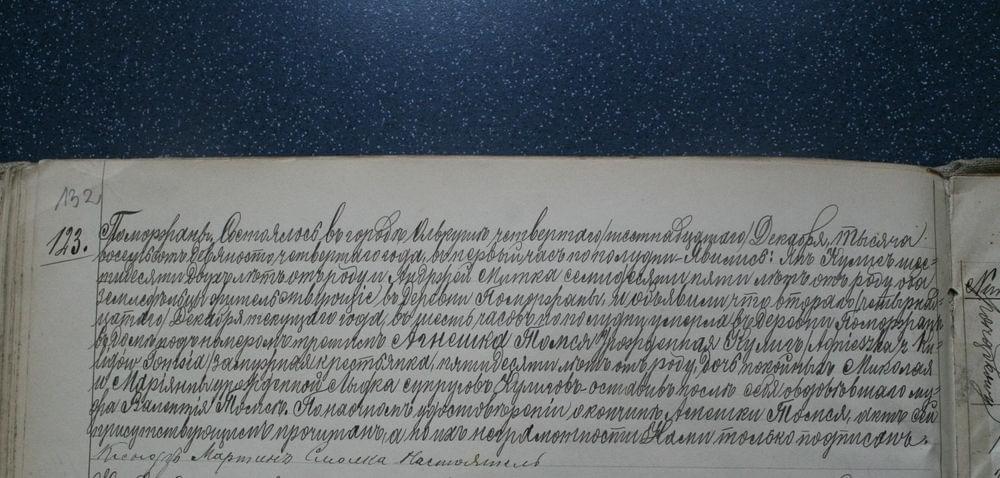 132
123.
Поморжаны. Состоялось въ городѣ Олькушѣ четвертаго /шестнадцатаго/ Декабря, тысяча
восемьсотъ девяносто четвертаго года, въ первый часъ по полудни. Явились: Янъ Кулисъ шес-
тидесяти двухъ лѣтъ отъ роду и Андрей Митка семидесяти пяти лѣтъ отъ роду, оба
земледѣльцы жительствующіе въ деревни Поморжаны, и объявили что втораго /четырнад-
цатаго/ Декабря текущаго года, въ шесть часовъ по полудни умерла въ деревни Поморжаны
въ домѣ подъ номеромъ третимъ Агнешка Томся урожденная Кулисъ /Agnieszka z Ku-
lisów Tomsia/ замужная крестьянка, пятидесяти лѣтъ отъ роду, дочь покойныхъ Миколая
и Маріянны урожденной Мыдка супруговъ Кулисовъ, оставивъ послѣ себя овдовѣвшаго му-
жа Валентія Томся. По наочномъ удостовѣреніи о кончинѣ Агнешки Томся, актъ сей
присутствующимъ прочитанъ, а по ихъ неграмотности Нами только подписанъ.
Ксендзъ Мартинъ Смолка Настоятель